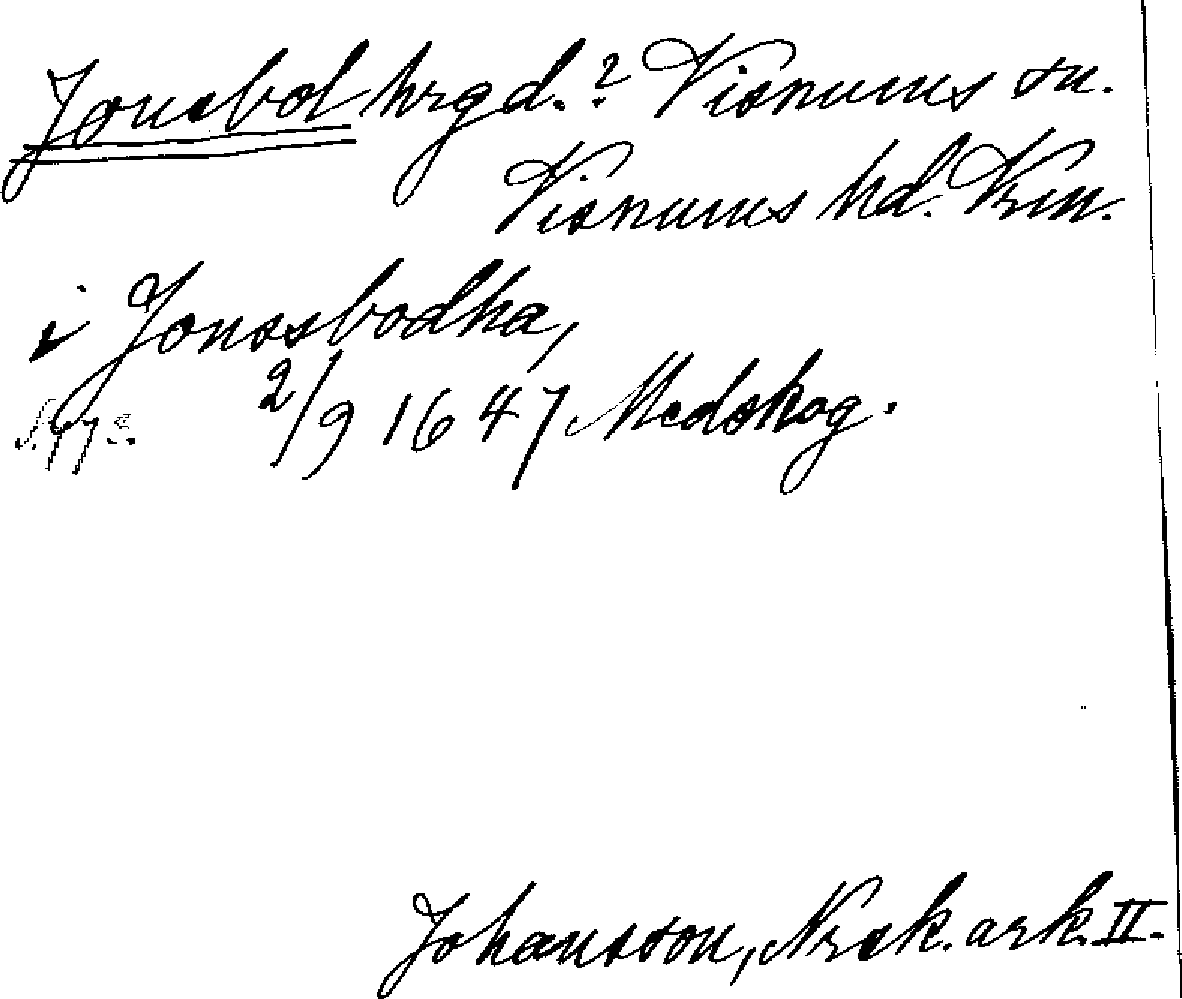 Jonsbol hrgd.? Visnums sn.
Visnums hd. Vrm.
i Jonssbodha,
2/9 1647 Medskog.
Johansson, Nrsk. ark. II.